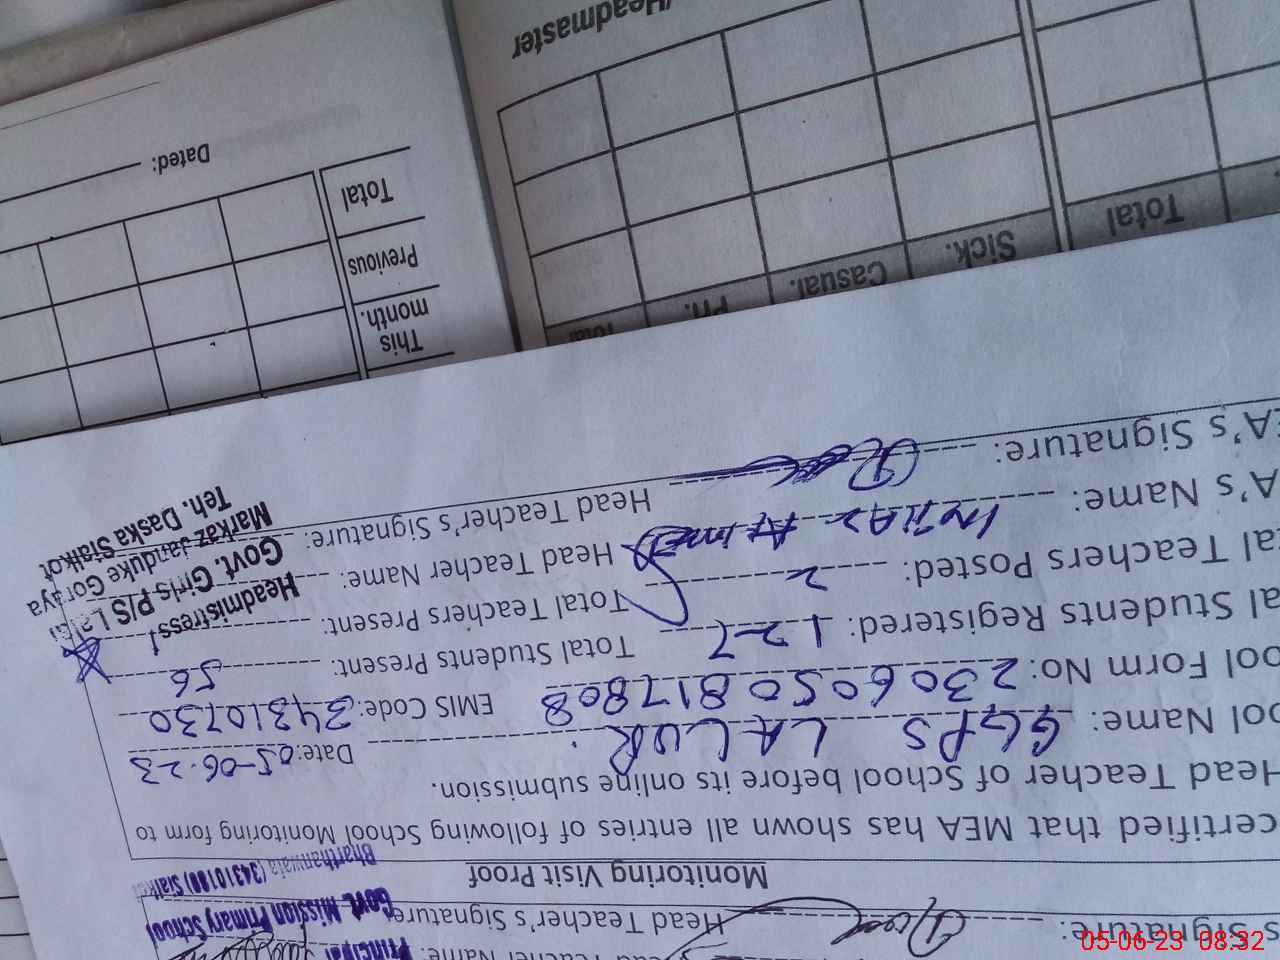 s Signature: Head Teacher's Signature
Principal
Govt. Mission Primary School
Bharthanwala (34310100) Sialkot
Monitoring Visit Proof
certified that MEA has shown all entries of following School Monitoring form to
Head Teacher of School before its online submission.
ool Name: GGPS LALUR Date: 05-06-23
ool Form No: 2306050817808 EMIS Code: 34310730
al Students Registered: 127 Total Students Present: 56
al Teachers Posted: 2 Total Teachers Present:
A's Name: Imtiaz Ahmed Head Teacher Name:
EA's Signature: Head Teacher's Signature:
Headmistress
Govt. Girls P/S
Markaz Janduke Goraya
Teh. Daska Sialkot
This month.
Previous
Total
Dated:
Pri. Casual. Sick. Total
/Headmaster
05-06-23 08:32